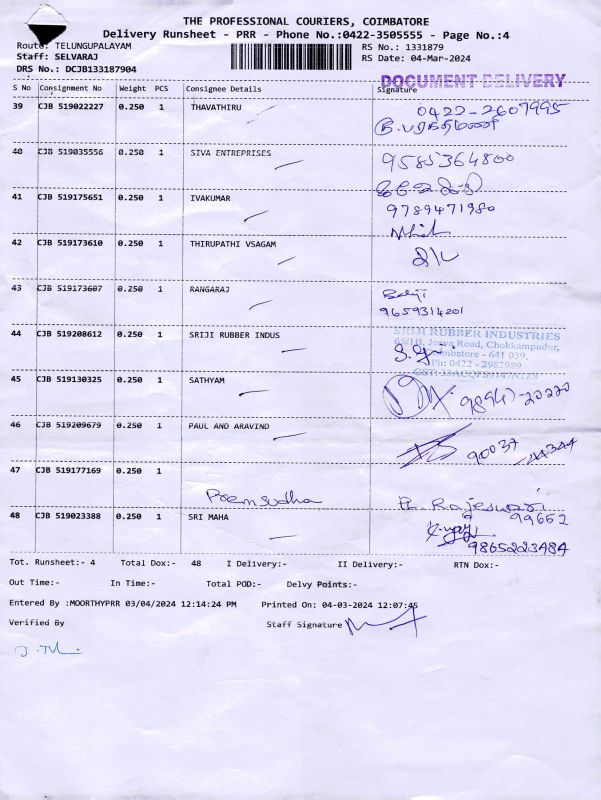 THE PROFESSIONAL COURIERS, COIMBATORE
Delivery Runsheet - PRR - Phone No.:0422-3505555 - Page No.:4
Route: TELUNGUPALAYAM RS No.: 1331879
Staff: SELVARAJ RS Date: 04-Mar-2024
DRS No.: DCJB133187904
DOCUMENT DELIVERY
S No Consignment No Weight PCS Consignee Details Signature
39 CJB 519022227 0.250 1 THAVATHIRU 0422-2607995
40 CJB 519035556 0.250 1 SIVA ENTREPRISES 9585364800
41 CJB 519175651 0.250 1 IVAKUMAR 9789471980
42 CJB 519173610 0.250 1 THIRUPATHI VSAGAM
43 CJB 519173607 0.250 1 RANGARAJ Balaji
9659314201
44 CJB 519208612 0.250 1 SRIJI RUBBER INDUS
SRIJI RUBBER INDUSTRIES
65/1B, Jeeva Road, Chokkampudur,
Coimbatore - 641 039.
Ph: 0422 - 2982989
45 CJB 519130325 0.250 1 SATHYAM 98947-20220
46 CJB 519209679 0.250 1 PAUL AND ARAVIND 90037
47 CJB 519177169 0.250 1
Poemsudha R. Rajeswari
99652
48 CJB 519023388 0.250 1 SRI MAHA
9865223484
Tot. Runsheet:- 4 Total Dox:- 48 I Delivery:- II Delivery:- RTN Dox:-
Out Time:- In Time:- Total POD:- Delvy Points:-
Entered By :MOORTHYPRR 03/04/2024 12:14:24 PM Printed On: 04-03-2024 12:07:45
Verified By Staff Signature